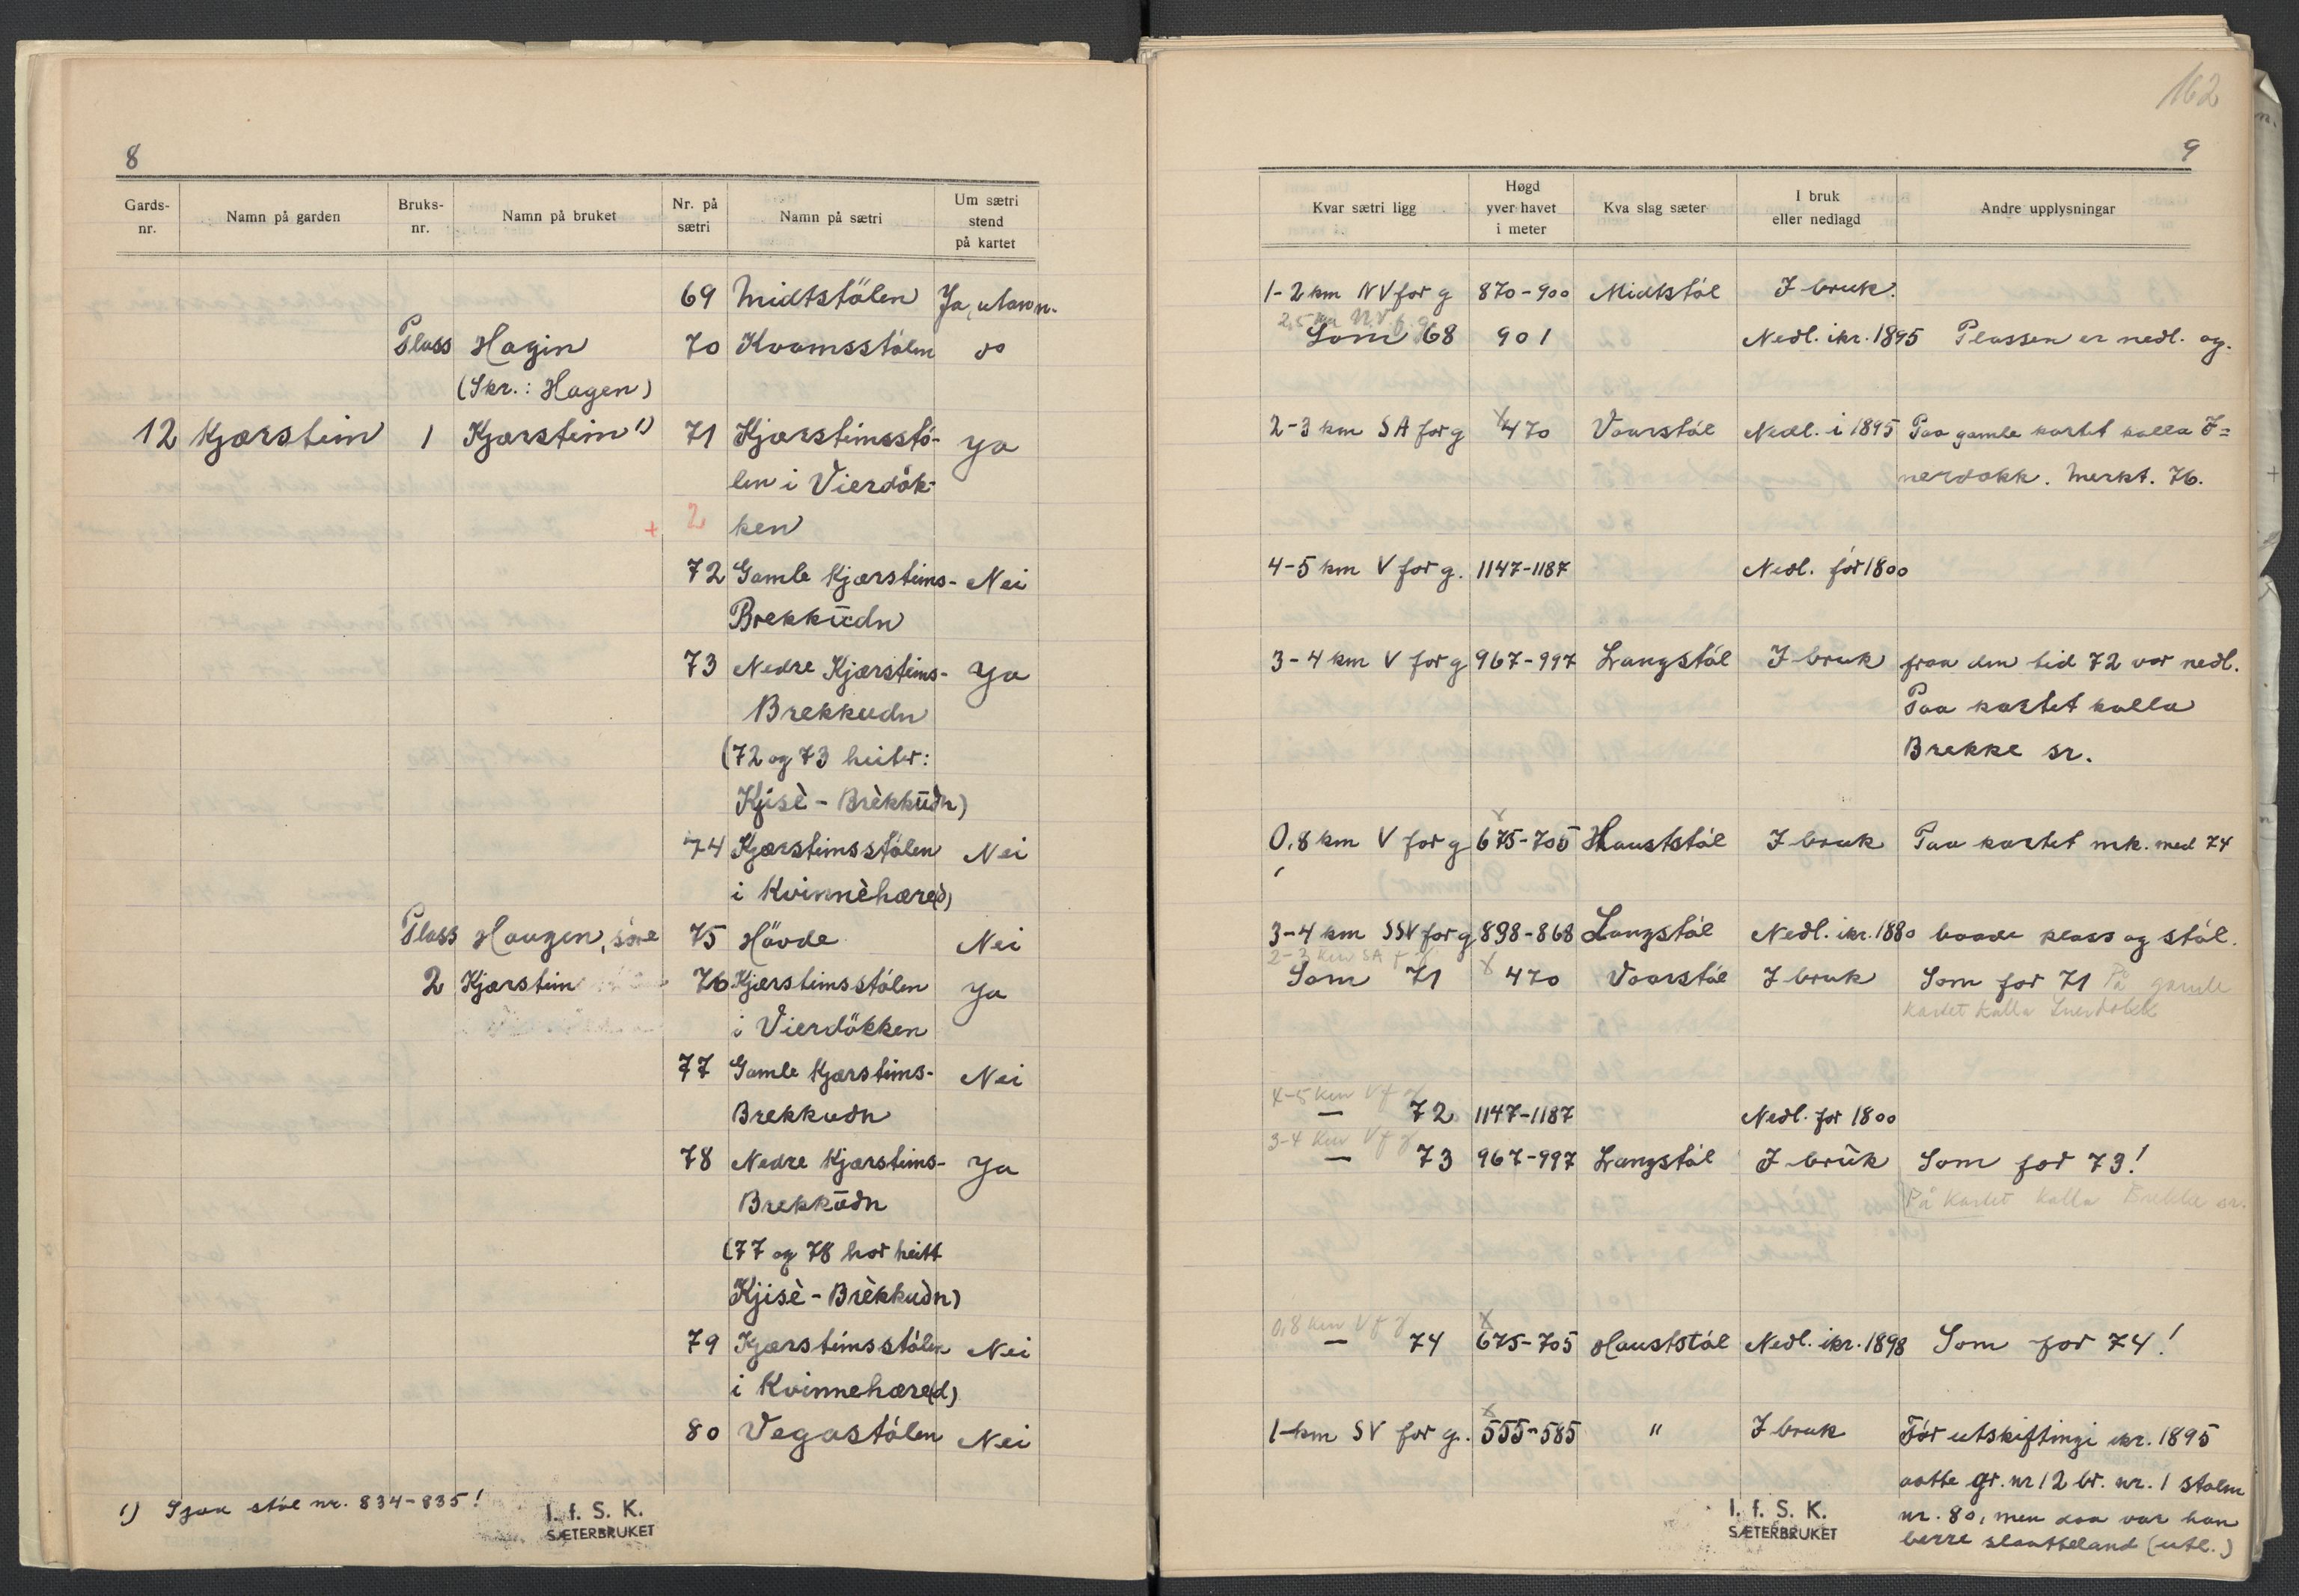 8
Gards-nr. Namn på garden Bruks-nr. Namn på bruket Nr. på sætri Namn på sætri Um sætri stend på kartet
69 Midtstölen Ja, utan n.
Plass Hagin 70 Kvamsstólen do
(Skr.: Hagen)
12 Kjærstein 1 Kjærstein 1) 71 Kjærsteinsstó- Ja
len i Vierdök-
+ 2 ken
72 Gamle Kjærsteins- Nei
Brekkūdn
73 Nedre Kjærsteins- Ja
Brekkudn
(72 og 73 heiter:
Kjisè - Brèkkūdn)
74 Kjærsteinsstólen Nei
i Kvinnèhære(d)
Plass Haugen, søre 75 Hövde Nei
2 Kjærstein 76 Kjærsteinsstólen Ja
i Vierdökken
77 Gamle Kjærsteins- Nei
Brekkudn
78 Nedre Kjærsteins- Ja
Brekkūdn
(77 og 78 hev heitt
Kjisè - Brèkkudn)
79 Kjærsteinsstólen Nei
i Kvinnehære(d)
80 Vegastólen Nei
1) Sjaa stól nr. 834-835!
I. f. S. K.
SÆTERBRUKET
162
9
Kvar sætri ligg Høgd yver havet i meter Kva slag sæter I bruk eller nedlagd Andre upplysningar
1-2 km NV for g 870-900 Midtstól I bruk.
2,5 km N.V f. g
Som 68 901 Nedl. ikr. 1895 Plassen er nedl. og.
2-3 km SA for g x 470 Vaarstól Nedl. i 1895 Paa gamle kartet kalla I=
nerdokk. Merkt. 76.
4-5 km V for g. 1147-1187 Nedl. för 1800
3-4 km V for g 967-997 Langstól I bruk fraa den tid 72 var nedl.
Paa kartet kalla
Brekke sr.
0,8 km V for g x 675-705 Hauststól I bruk Paa kartet mk. med 74
3-4 km SSV for g 898-868 Langstól Nedl. ikr. 1880 baade plass og stól.
2-3 km SA f g
Som 71 x 470 Vaarstól I bruk Som for 71 På gamle
kartet kalla Inerdokk
4-5 km V f g
— 72 1147-1187 Nedl. før 1800
3-4 km V f g
— 73 967-997 Langstól I brūk Som for 73!
På kartet kalla Brekke sr.
0,8 km V f g
— 74 x 675-705 Hauststól Nedl. ikr. 1898 Som for 74!
1-km SV for g. x 555-585 " I bruk Før utskiftingi ikr. 1895
aatte gr. nr 12 br. nr. 1 stølen
nr. 80, men daa var han
berre slaatteland (utl.)
I. f. S. K.
SÆTERBRUKET